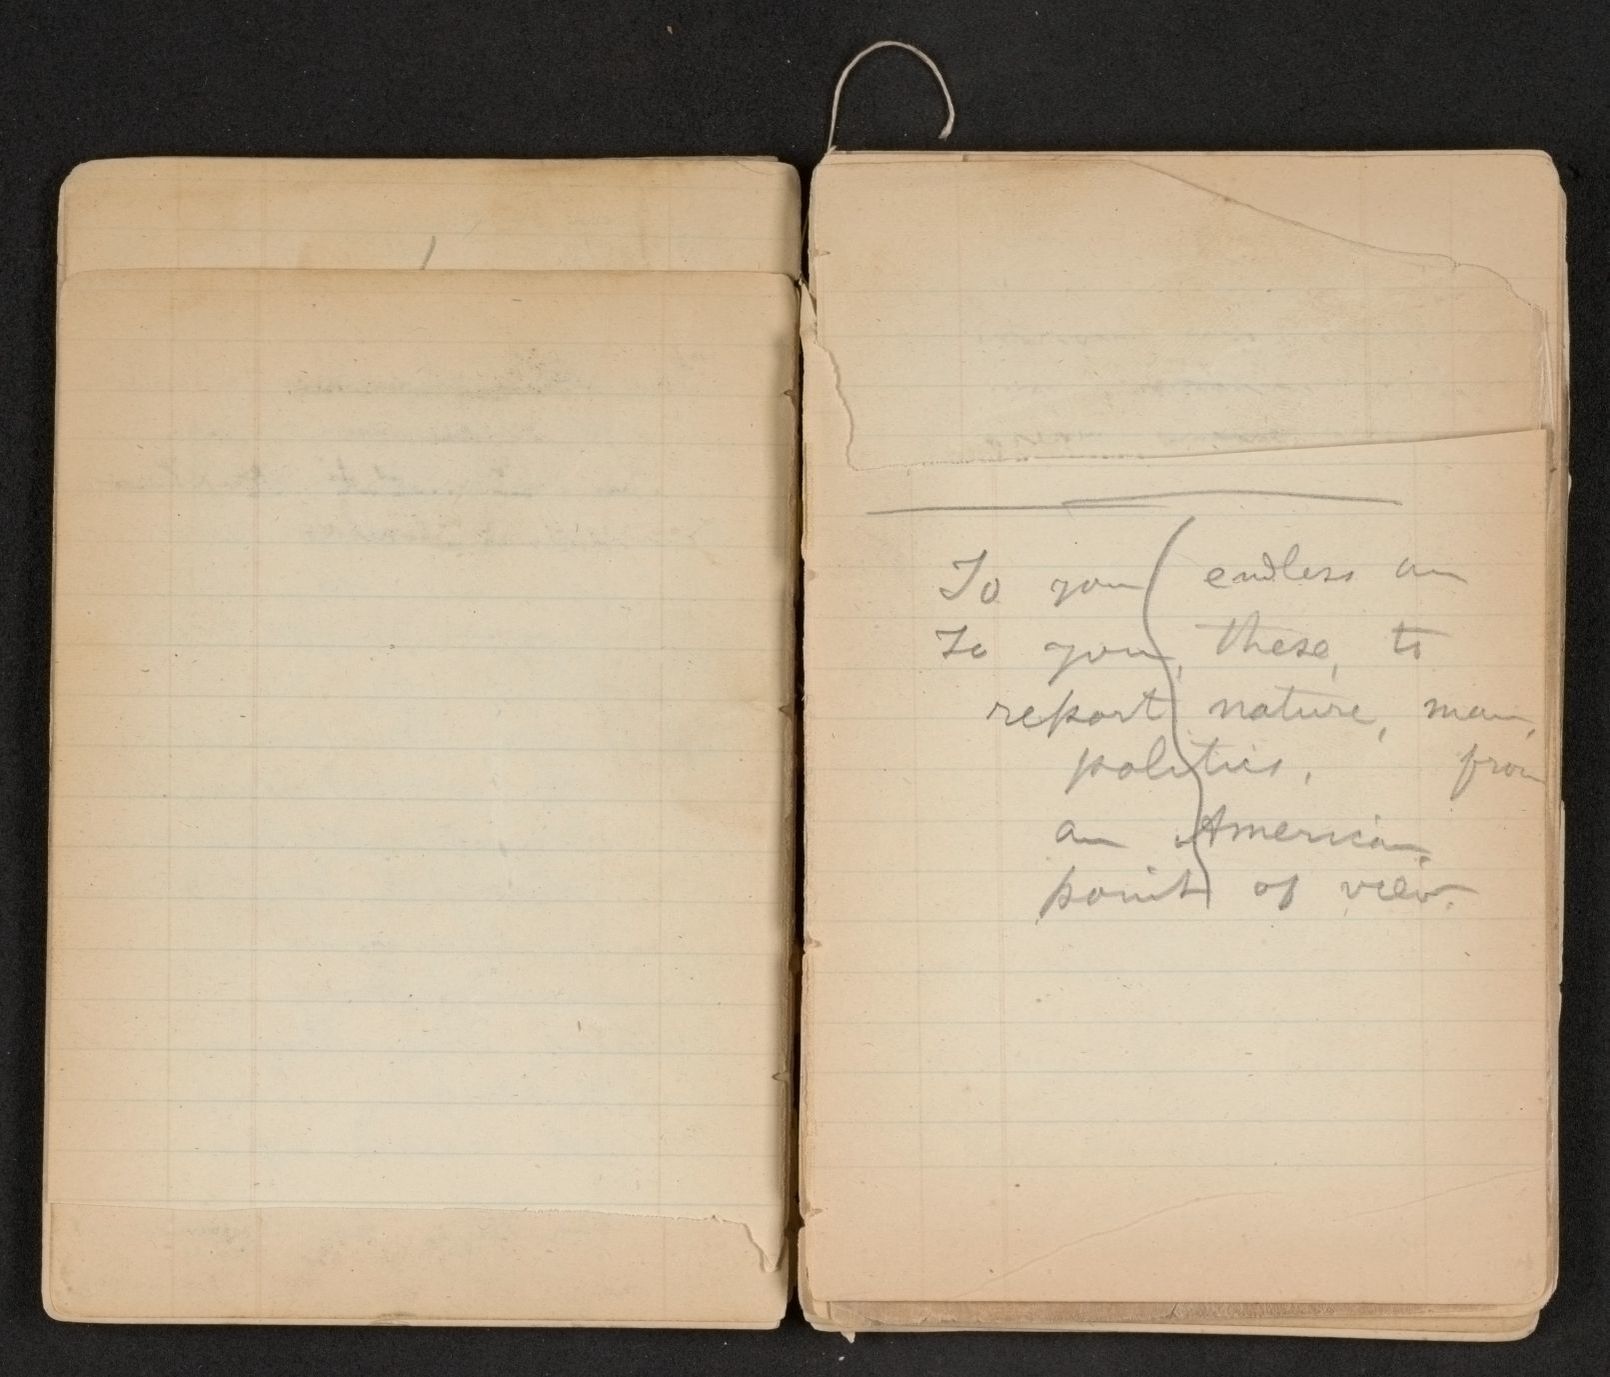 To you endless an
To you, these, to
report nature, man,
politics, from
an American
point of view.